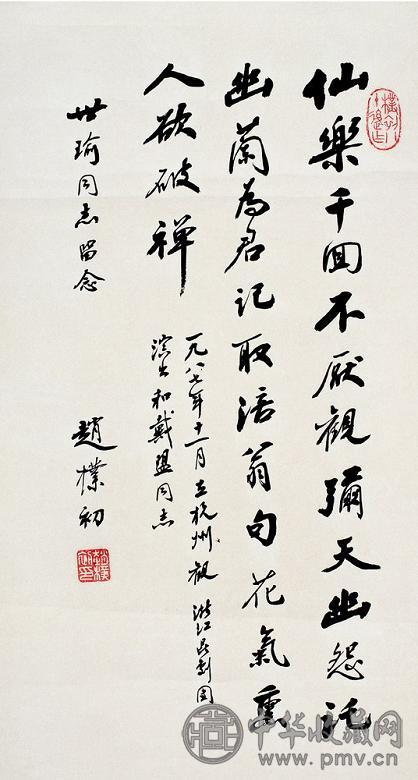 仙樂千囬不厭觀彌天幽怨託
幽蘭為君記取涪翁句花氣熏
人欲破禪
一九八七年十一月在杭州观浙江昆剧团
演出和戴盟同志
世瑜同志留念
趙樸初
中华收藏网
www.pmv.cn